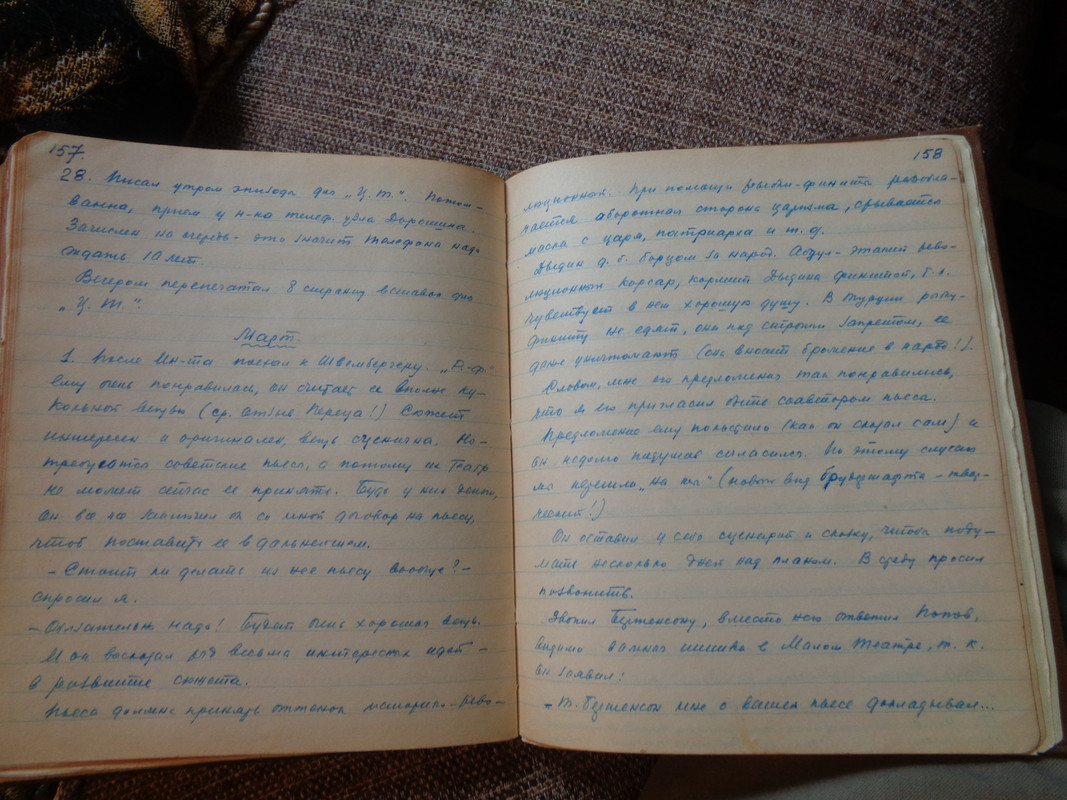 157.
28. Писал утром эпизода для „Ц. т.". Потом —
ванна, прием у н-ка телеф. узла Дорошина.
Зачислен на очередь — это значит телефона надо
ждать 10 лет.
Вечером перепечатал 8 страниц вставок для
„Ц. т.".
Март
1. После Ин-та поехал к Швембергеру. „Р-ф"
ему очень понравилась, он считает ее вполне ку-
кольной вещью (ср. мнение Переца!) Сюжет
интересен и оригинален, вещь сценична. Но —
требуются советские пьесы, а потому их театр
не может сейчас ее принять. Будь у них деньги,
он все же заключил бы со мной договор на пьесу,
чтоб поставить ее в дальнейшем.
— Стоит ли делать из нее пьесу вообще? —
спросил я.
— Обязательно надо! Будет очень хорошая вещь.
И он высказал ряд весьма интересных идей —
в развитие сюжета.
Пьеса должна принять оттенок историко-рево-
158
люционной. При помощи рыбки-финита разобла-
чается оборотная сторона царизма, срывается
маска с царя, патриарха и т. д.
Дыдин д. б. борцом за народ. Абдул — этакий рево-
люционный корсар, кормит Дыдина финитой, т. к.
чувствует в нем хорошую душу. В Турции рыбу-
финиту не едят, она под строгим запретом, ее
даже уничтожают (она вносит брожение в народ!).
Словом, мне его предложения так понравились,
что я его пригласил быть соавтором пьесы.
Предложение ему польстило (как он сказал сам) и
он недолго подумав согласился. По этому случаю
мы перешли „на ты" (новый вид брудершафта — твор-
ческий!)
Он оставил у себя сценарий и сказку, чтобы поду-
мать несколько дней над планом. В среду просил
позвонить.
Звонил Бертенсону, вместо него ответил Попов,
видимо важная шишка в Малом театре, т. к.
он заявил:
— Т. Бертенсон мне о вашей пьесе докладывал...